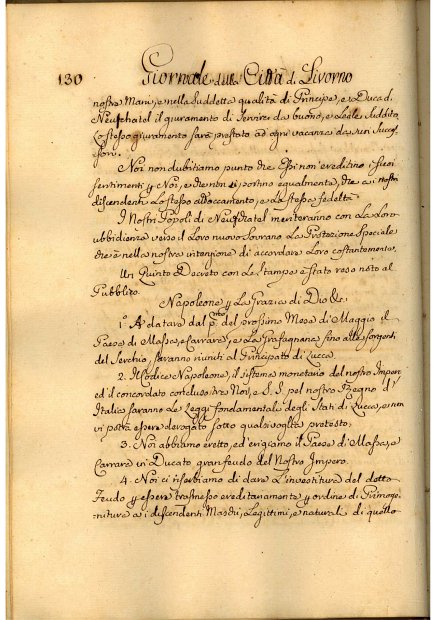 130 Giornale della Città di Livorno
nostre Mani, e nella suddetta qualità di Principe, e Duca di
Neufchatel il giuramento di servirci da buono, e Leale suddito
Lo stesso giuramento sarà prestato ad ogni vacanza da suoi Succes-
sori.
Noi non dubitiamo punto che Essi non ereditino i suoi
sentimenti p Noi, e che non ci portino egualmente, che a i nostri
discendenti Lo stesso attaccamento, e La stessa fedeltà.
I Nostri Popoli di Neufchatel meriteranno con La Loro
ubbidienza verso il Loro nuovo Sovrano La Protezione speciale
che è nella nostra intenzione di accordare Loro costantemente.
Un Quinto Decreto con Le stampe è stato reso noto al
Pubblico.
Napoleone p La Grazia di Dio &c.
1.º A datare dal pmo del prossimo Mese di Maggio il
Paese di Massa, e Carrara, e La Grafagnana fino alle sorgenti
del Serchio, saranno riuniti al Principato di Lucca.
2. Il Codice Napoleone, il sistema monetario del nostro Impero
ed il concordato concluso tra Noi, e S. S. pel nostro Regno d'
Italia saranno Le Leggi fondamentali degli Stati di Lucca, e non
vi potrà essere derogato sotto qualsivoglia pretesto,
3. Noi abbiamo eretto, ed erigiamo il Paese di Massa, e
Carrara in Ducato gran feudo del Nostro Impero.
4. Noi ci riserbiamo di dare L'investitura del detto
Feudo p essere trasmesso ereditariamente p ordine di Primoge-
nitura a i discendenti Maschi, Legittimi, e naturali di quello